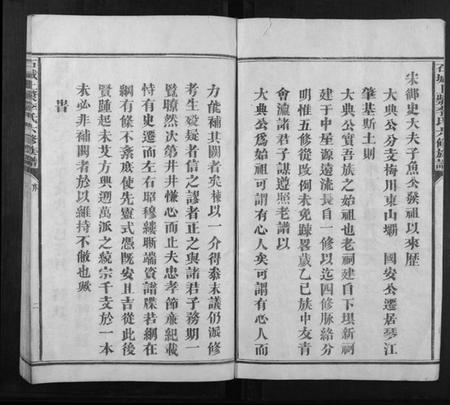 宋御史大夫子魚公發祥以來歷
大典公分支梅川東山壩 國安公遷居琴江
肇基斯土則
大典公實吾族之始祖也老祠建自下壩新祠
建于中屋源遠流長自一修以迄四修脉絡分
明惟五修從攺例未免踈畧歲乙巳族中友青
會瀛諸君子謀遵照老譜以
大典公為始祖可謂有心人矣可謂有心人而
力能補其闕者矣棟以一介得叅末議仍派修
考生疑疑者信之謬者正之與諸君子務期一
覽瞭然次第井井慊心而止夫忠孝節亷紀載
恃有史遷而左右昭穆縷晰端資譜牒若網在
綱有條不紊庶使先靈式憑既安且吉從此後
賢踵起未艾方興逓萬派之繞宗千支於一本
未必非補闕者於以維持不敝也歟
旹
石城 李氏六修族譜
序
二